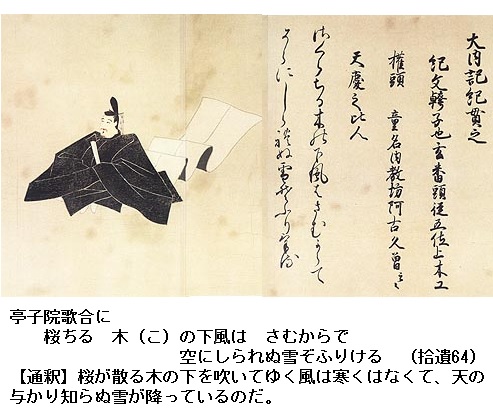 大内記紀貫之
紀文幹子也玄番頭従五位上木工
權頭 童名内教坊阿古久曽云々
天慶之比人
さくらちる木の下風はさむからて
そらにしられぬ雪そふりける
亭子院歌合に
桜ちる 木（こ）の下風は さむからで
空にしられぬ雪ぞふりける （拾遺64）
【通釈】桜が散る木の下を吹いてゆく風は寒くはなくて、天の
与かり知らぬ雪が降っているのだ。